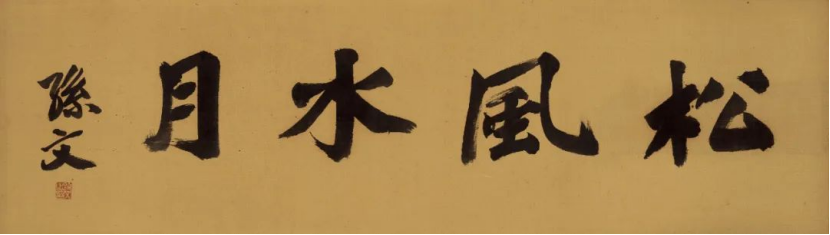 松風水月
孫文